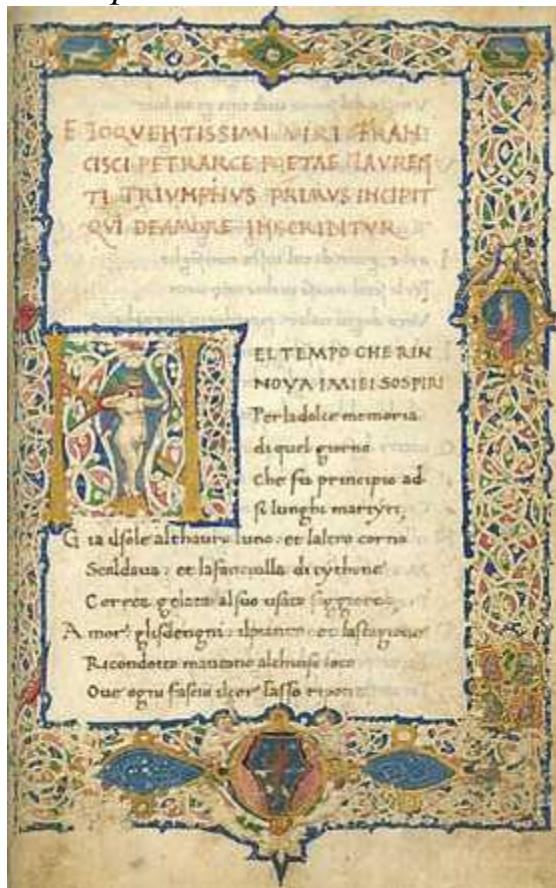 ELOQVENTISSIMI VIRI FRAN
CISCI PETRARCE POETAE LAVREA
TI TRIVMPHVS PRIMVS INCIPIT
QVI DEAMORE INSCRIBITVR
NEL TEMPO CHE RIN
NOVA IMIEI SOSPIRI
Per la dolce memoria
di quel giorno
Che fu principio ad
si lunghi martyri,
Gia il sole al thauro luno et laltro corno
Scaldaua et la fanciulla di tythone
Correa gelata al suo usato soggiorno
Amor gli sdengni il pianto et la stagione
Ricondotto al chiuso loco
Oue ogni fascio il cor lasso ripone